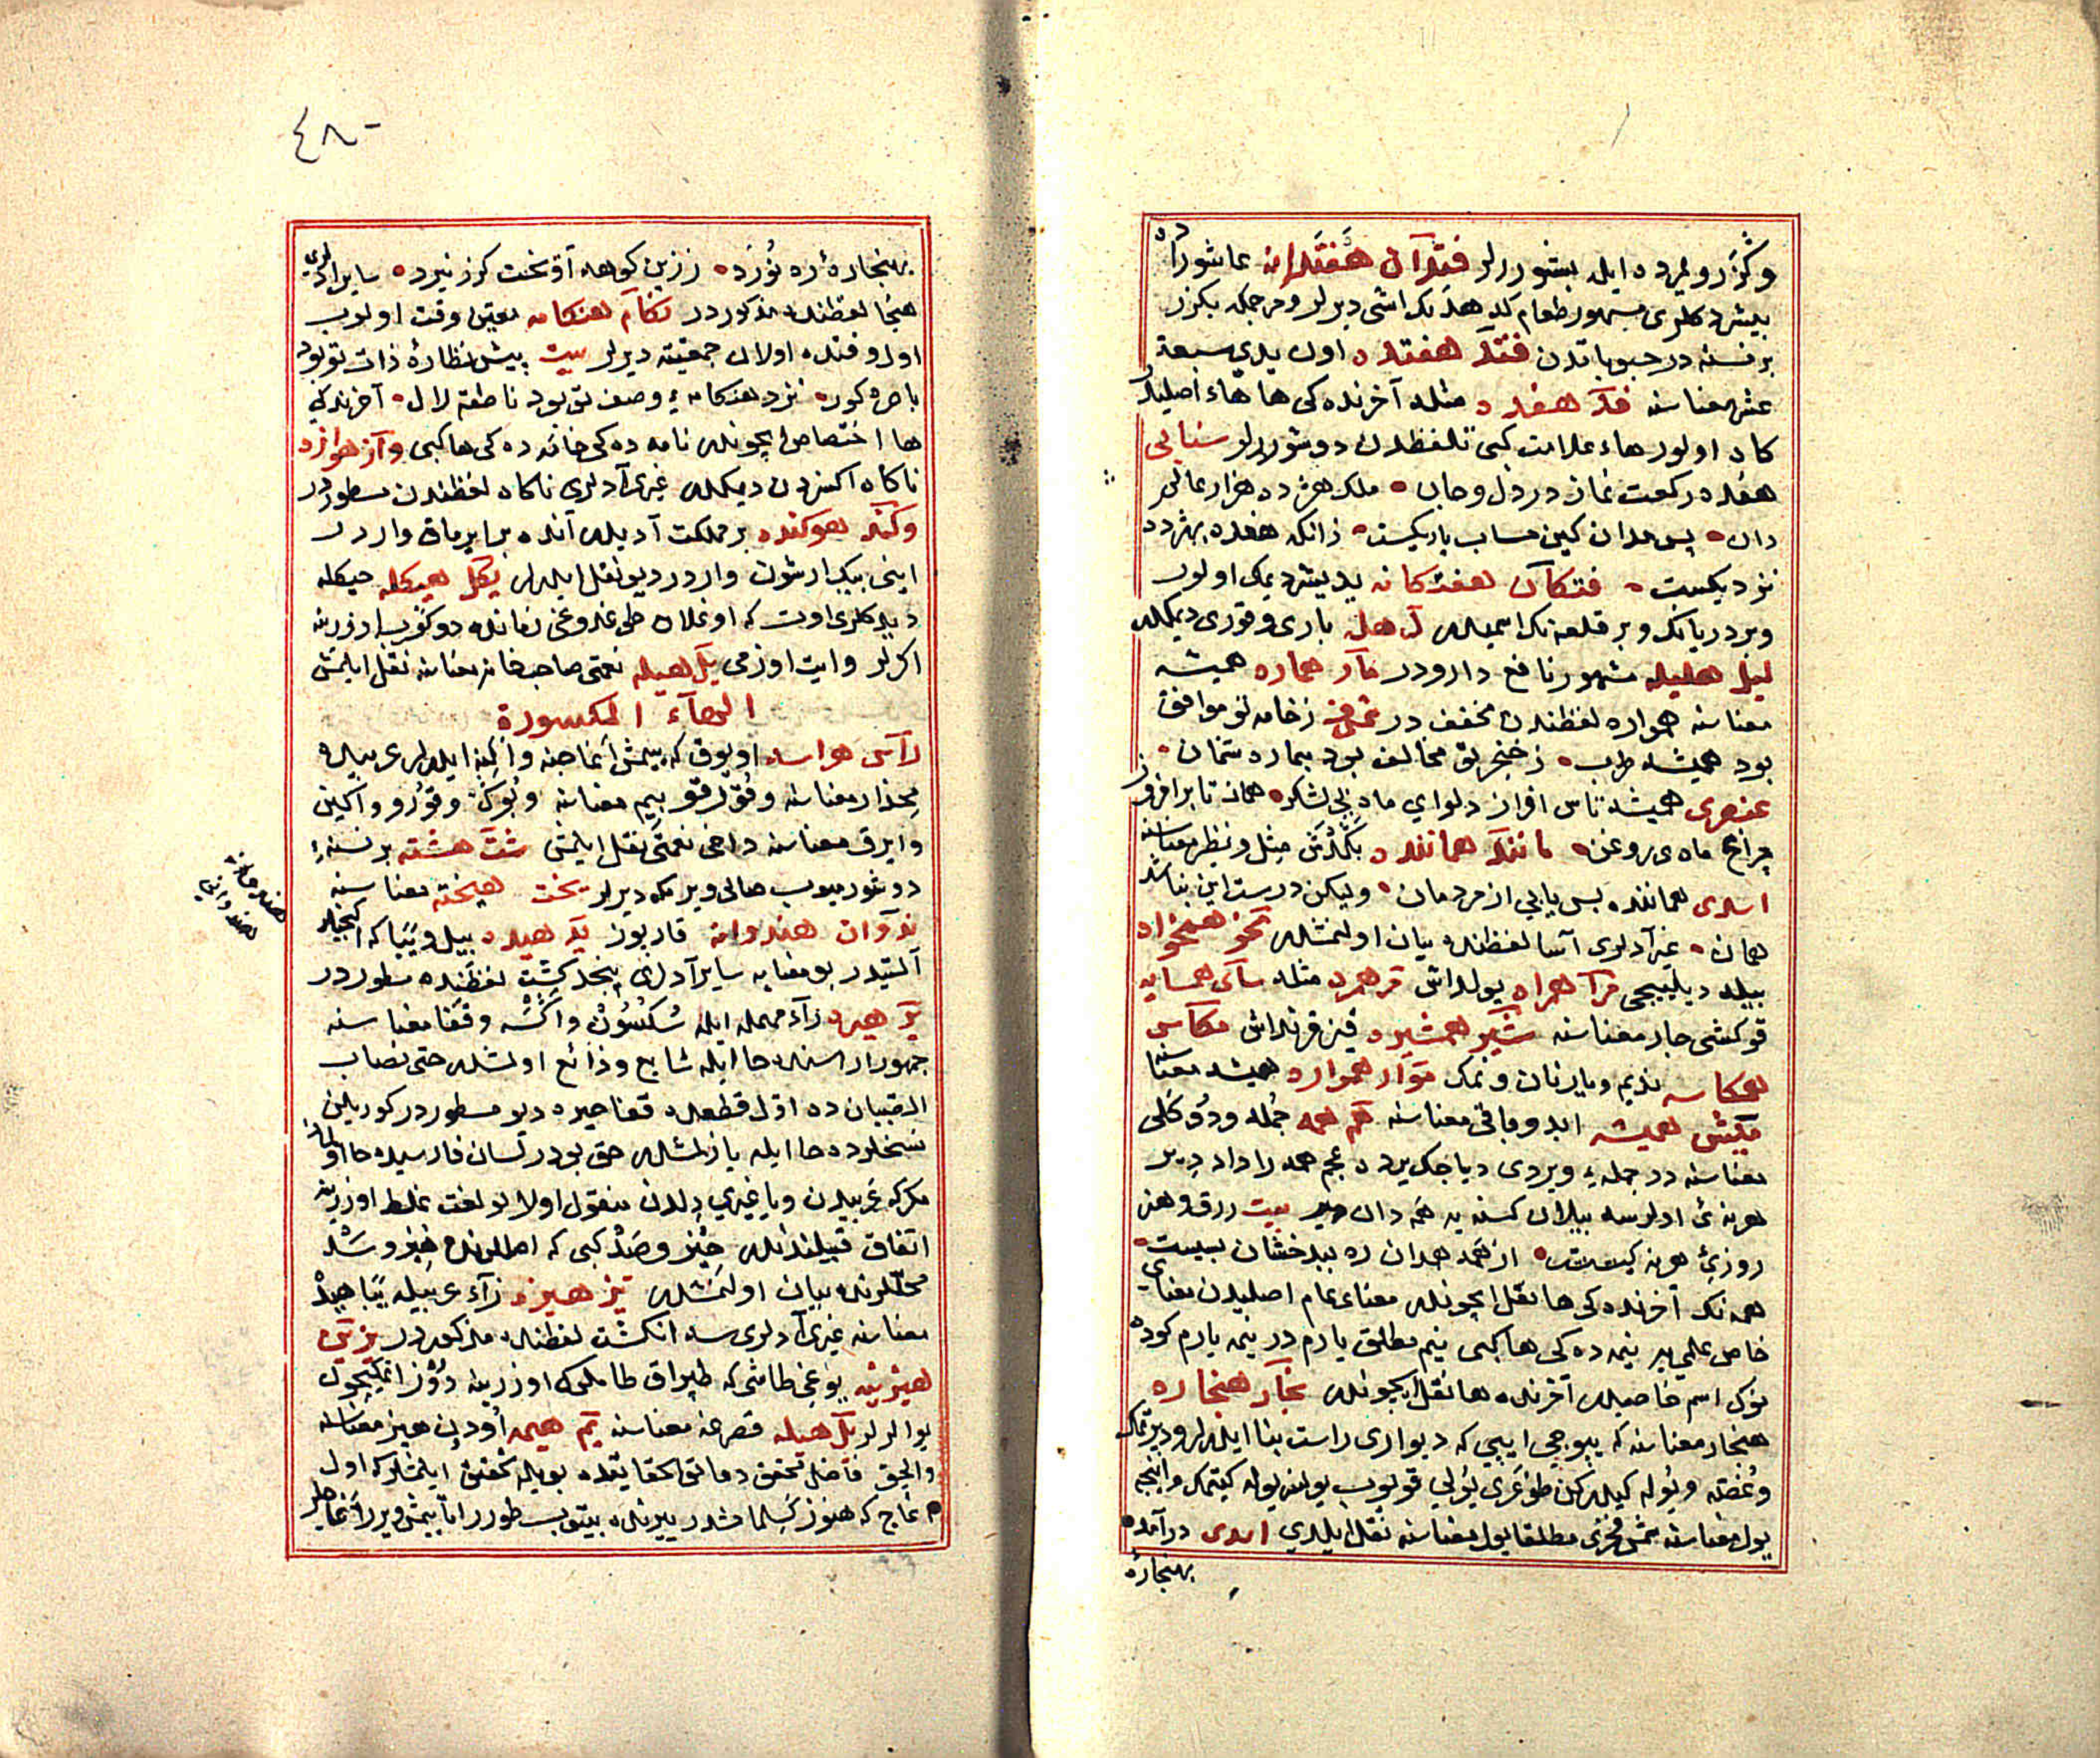 وكزر و يرده ايله بشوررلر فتدآن هفتدانه عاشورا ده
بيشردكلرى مشهور طعام كه هدنك اشى ديرلر ومرجمكه بكزر
بر نسنه در حبوباتدن فتد هفتده اون يدى سبعة
عشر معناسنه فد هفده مثله آخرنده كى ها هاء اصليدر
كاه اولور هاء علامت كبى تلفظدن دوشوررلر سنايى
هفده ركعت نماز در دل وجان ملك هژده هزار عالم
دان پس مدان كين حساب باريكست زانكه هفده بهژده
نزديكست فتكآن هفتكانه يديشر ديمك اولور
وبر دريانك وبر قلعه نك اسميدر له هله بارى وقورى ديمكدر
ليل هليله مشهور نافع دارودر مآر هماره هميشه
معناسنه همواره لفظندن مخفف در شمس فخرى زخامه تو موافق
بود هميشه طرب زخنجر تو مخالف بود بماره غمان
عنصرى هميشه تاس افراز دلواى ماه بى لشكر همانه تا بر افروز
چراغ ماه بى روغن مانند هماننده بكدش مثل ونظير معناسنه
اسدى هماننده بس يابى از مردمان وليكن درست اين نباشد
همان غيرى آدلرى آسا لفظنده بيان اولنمشدر مخو همخواه
بيله ديليجى مرآ همراه يولداش مر همره مثله سآى همسايه
قوكشى جار معناسنه شير همشيره قيز قرنداش مكآس
همكاسه نديم ويار نان ونمك موآر همواره هميشه معناسنه
ميش هميشه ابد وباقى معناسنه هم همه جمله ودوكلى
معناسنه در جمله ويردى دياجك يرده عجم همه را داد دير
هر نه ئى اولورسه بيلان كسنه يه همه دان دير بيت رزق وهنر
روزئ هر نه كيست از همه همدان ره ببدخشان بسيست
همه نك آخرنده كى ها نقل ايچوندر معناى عام اصليدن معناى
خاص علمى به نيمه ده كى ها كبى نيم مطلق يارم در نيمه يارم كوده
نوك اسم خاصيدر آخرنده ها نقل ايچوندر نجآر هنجاره
هنجار معناسنه كه يپوجى ايپى كه ديوارى راست بنا ايدرلر وديرتمك
وغفته ويوله كيدركن طوغرى يولى قويوب يولسز يوله كيتمك وانجه
يول معناسنه شمس فخرى مطلقا يول معناسنه نقل ايلدى اسدى درآمد
بهنجاره
٤٨٠
بهنجارهٔ ره نورد زرين كوهه آو نخت كرز نبرد ساير آدلرى
هنجا لفظنده مذكوردر نكام هنكامه معين وقت اولوب
اول وقتده اولان جمعيته ديرلر بيت پيش نظارهٔ ذات تو بود
باصره كور نزد هنكامهٔ وصف تو بود ناطقه لال آخرنده كى
ها اختصاص ايچوندر نامه ده كى خانه ده كى ها كبى وآز هوازه
ناكاه اكسزدن ديمكدر غيرى آدلرى ناكاه لفظندن مسطوردر
وكند هوكنده بر مملكت آديدر آنده برابر ماق واردر
اينى بيك ارشون واردر ديو نقل ايدرلر يكل هيكله حيكله
ديدكلرى اوت كه اوغلان طوغدوغى زمانده دوكوب اوزرينه
اكرلر وايت اوزمى يل هيله نعمتى صاحب خانه معناسنه نقل ايلمش
الهآء المكسورة
رآس هراسه اويوق كه يمش آغاجنه واكينه ايدرلر عربيده
مجدار معناسنه وقورقو بيم معناسنه وبوك وقورو واكين
وايرق معناسنه داخى نعمتى نقل ايلمش شت هشته بر نسنه ء
دوشورميوب حالى ويرمكه ديرلر يخت هيخته معناسنه
ندوآن هندوانه قاربوز يد هيده بيل ويبا كه اكنجيلر
آلتيدر بو معنايه ساير آدلرى پنجه كشت لفظنده مسطوردر
ير هيره رآء مهمله ايله سكسون واكشه وقفا معناسنه
جمهور السنه ده حا ايله شايع وذائع اولمشدر حتى نصاب
الصبيان ده اول قطعه ده قفا حيره ديو مسطوردر كوريلن
نسخلرده حا ايله يازلمشدر حق بودر لسان فارسيده حا اولماز
مكر كه عربيدن ويا غيرى دلدن منقول اولا بو لغت غلط اوزرينه
اتفاق قبيلندندر حيز وصد كبى كه اصللرنده هيز وسد
محللرنده بيان اولنمشدر يز هيزه زآء عربيله يبا هيد
معناسنه غيرى آدلرى سه انكشت لفظنده مذكوردر يزين
هيزينه يوغى طاشى كه طپراق طامكى كه اوزرينه دوز اتمكيچون
يوالرلر يل هيله قصرغه معناسنه يم هيمه اودين هيز معناسنه
والحق فاضل محقق دقائق الحقايقده بويله تحقيق ايلمشدر كه اول
آغاج كه هنوز كسلمامشدر ييرنده بيتوب طورر اما يمش ويرر آغاجلر
هندوانه
هندوانى